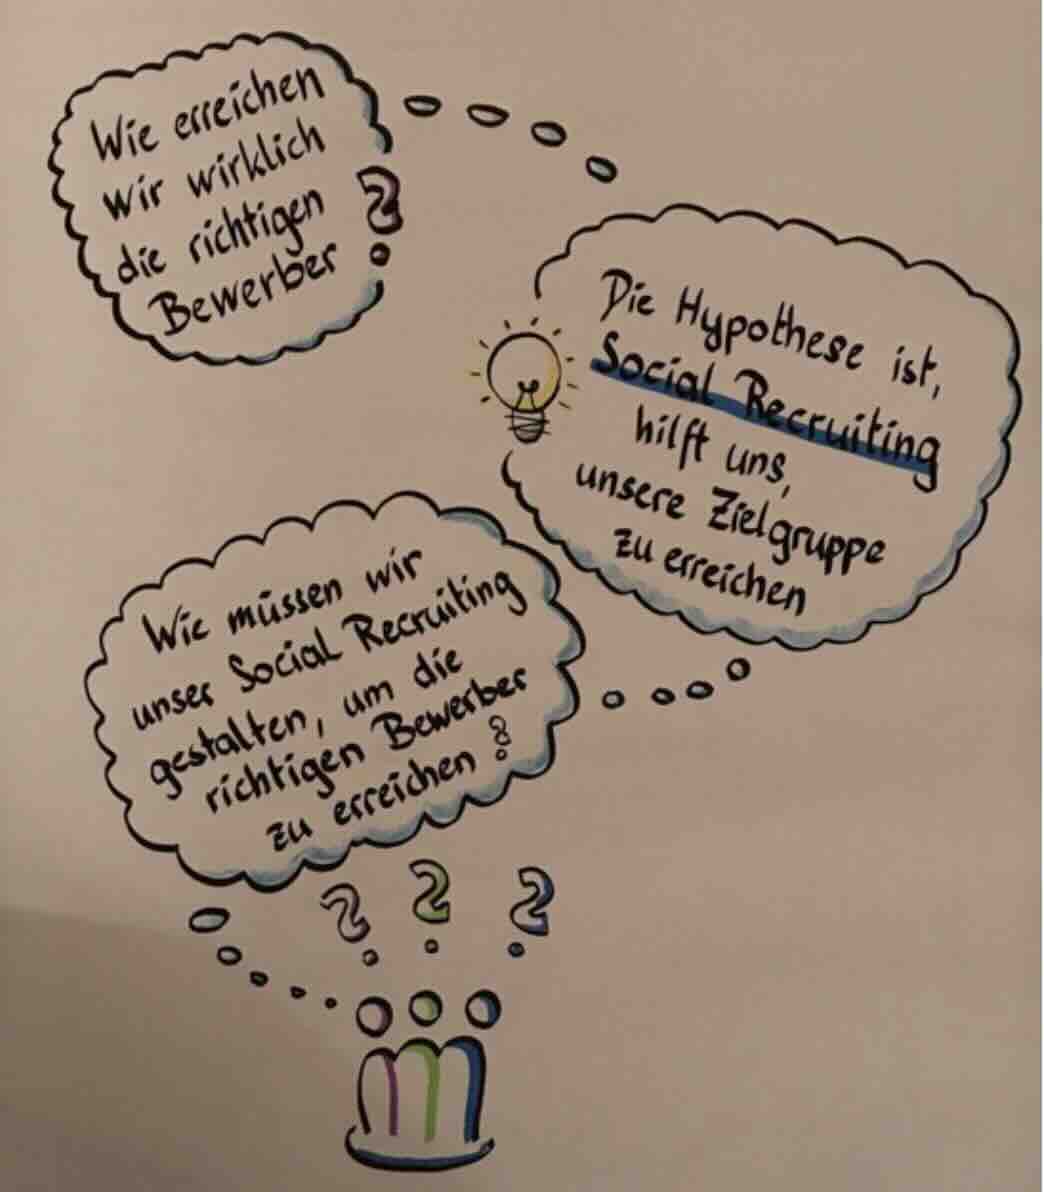 Wie erreichen
wir wirklich
die richtigen
Bewerber ?
Die Hypothese ist,
Social Recruiting
hilft uns,
unsere Zielgruppe
zu erreichen
Wie müssen wir
unser Social Recruiting
gestalten, um die
richtigen Bewerber
zu erreichen ?
? ? ?